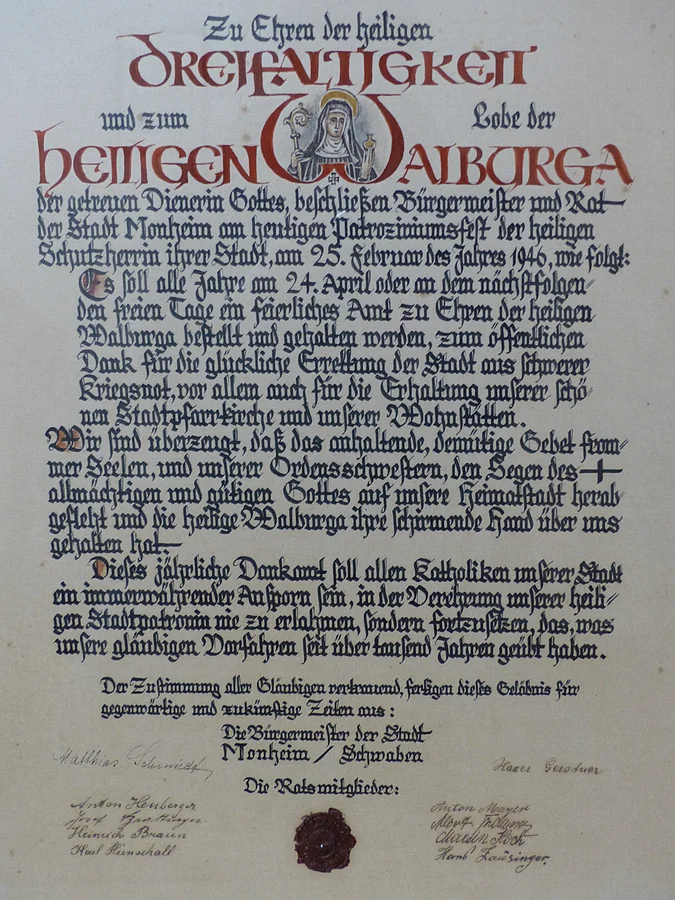 Zu Ehren der heiligen
DREIFALTIGKEIT
und zum Lobe der
HEILIGEN WALBURGA
der getreuen Dienerin Gottes, beschließen Bürgermeister und Rat
der Stadt Monheim am heutigen Patroziniumsfest der heiligen
Schutzherrin ihrer Stadt, am 25. Februar des Jahres 1946, wie folgt:
Es soll alle Jahre am 24. April oder an dem nächstfolgen-
den freien Tage ein feierliches Amt zu Ehren der heiligen
Walburga bestellt und gehalten werden, zum öffentlichen
Dank für die glückliche Errettung der Stadt aus schwerer
Kriegsnot, vor allem auch für die Erhaltung unserer schö-
nen Stadtpfarrkirche und unserer Wohnstätten.
Wir sind überzeugt, daß das anhaltende, demütige Gebet from-
mer Seelen, und unserer Ordensschwestern, den Segen des
allmächtigen und gütigen Gottes auf unsere Heimatstadt herab-
gefleht und die heilige Walburga ihre schirmende Hand über uns
gehalten hat.
Dieses jährliche Dankamt soll allen Katholiken unserer Stadt
ein immerwährender Ansporn sein, in der Verehrung unserer heili-
gen Stadtpatronin nie zu erlahmen, sondern fortzusetzen, das, was
unsere gläubigen Vorfahren seit über tausend Jahren geübt haben.
Der Zustimmung aller Gläubigen vertrauend, fertigen dieses Gelöbnis für
gegenwärtige und zukünftige Zeiten aus:
Die Bürgermeister der Stadt
Monheim / Schwaben
Matthias Schmidt
Gerstner
Die Ratsmitglieder:
Anton Heuberger
Anton Mayer
Josef
Heinrich Braun
Martin Koch
Karl Henschall
Hans Lausinger.